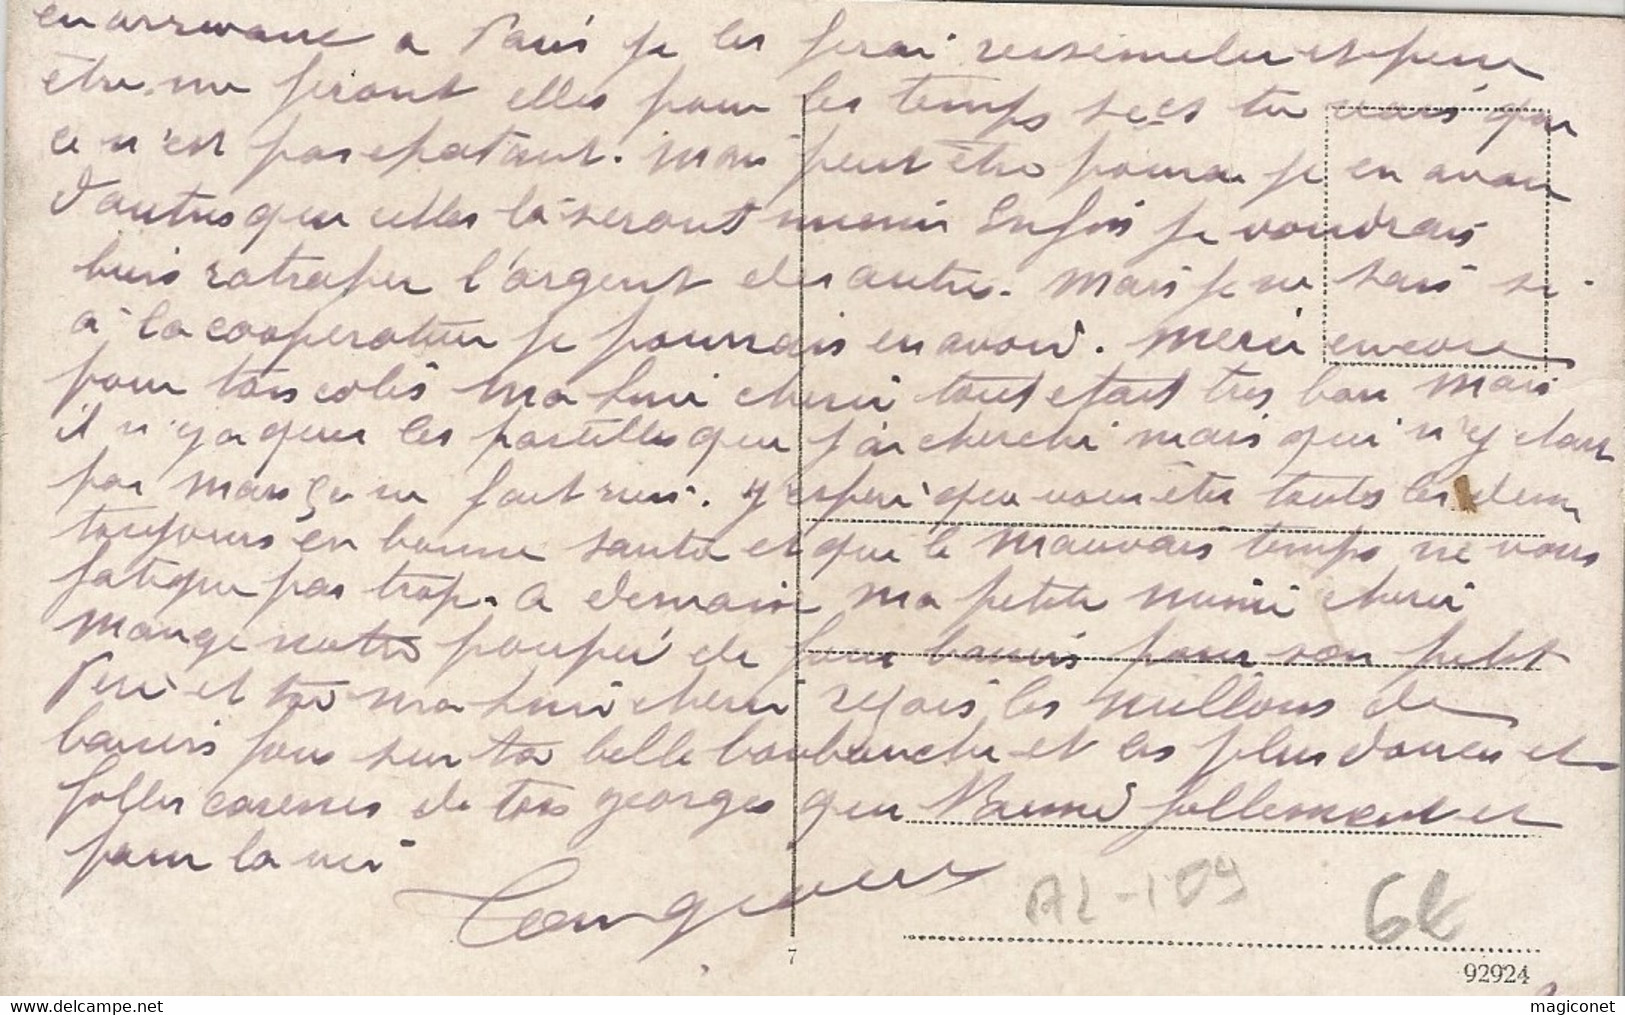 en arrivant a Paris je les ferai ressemeler et peux
être me feront elles pour les temps secs tu vois que
ce n'est pas epatant. Mais peut être pourai je en avoir
d'autres que celles la seront Enfin je voudrais
bien ratraper l'argent des autres. Mais je ne sais si
a la cooperative je pourrais en avoir. Merci encore
pour ton colis ma cherie tout etait tres bon Mais
il n'y a que les pastilles que j'ai cherché mais qui n'y etais
pas mais ça ne fait rien. J'espere que vous êtes toutes les deux
toujours en bonne santé et que le mauvais temps ne vous
fatigue pas trop. a demain ma petite mimi cheri
mange notre poupé de gros baisers pour son petit
Peré et toi ma cheri reçois les millions de
baisers fous sur ta belle bouche et les plus douces et
folles caresses de ton georges qui t'aime follement et
pour la vie
AL-109
6€
7
92924
magiconet